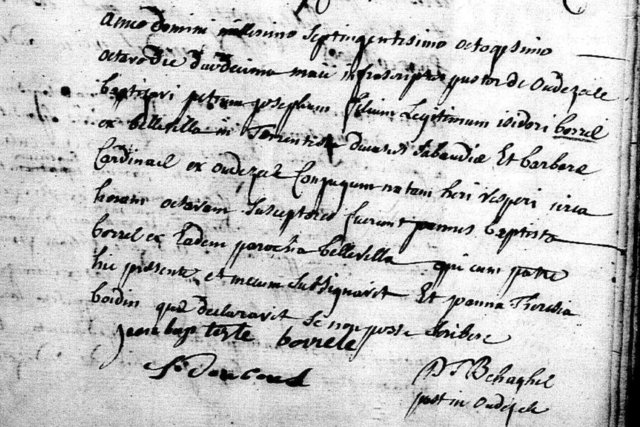 Anno Domini millesimo Septingentisimo octogesimo
octavo die duodecima maii infrascriptus pastor de Oudezeele
baptizavi petrum josephum filium Legitimum isidori borrel
ex bellevilla in Tarentisia ducatus Sabaudiæ Et barbaræ
Cardinael ex oudezeele Conjugum natam heri vesperi circa
horam octavam Susceptores fuerunt joannes baptista
borrel ex Eadem parochia bellevilla qui cum patre
hic presente et mecum subsignavit Et joanna Theresia
boidin quæ declaravit se non posse scribere
jean batiste borrele
P J Behaghel
past in Oudezeele